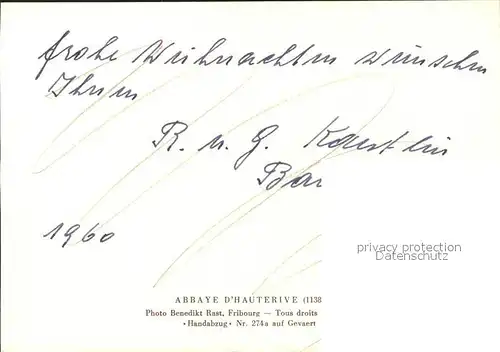 frohe Weihnachten wünschen
Ihnen
R. u. G. Kaestlin
Bar
1960
privacy protection
www.ansichtskarten-center.de
ABBAYE D'HAUTERIVE (1138
Photo Benedikt Rast, Fribourg — Tous droits
«Handabzug» Nr. 274a auf Gevaert